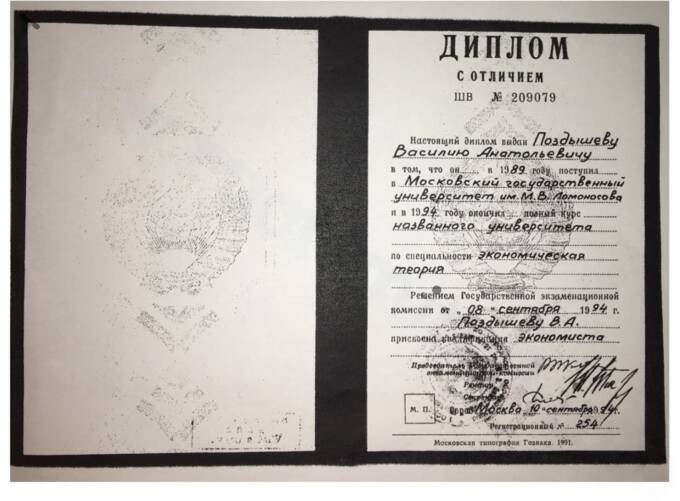 ДИПЛОМ
С ОТЛИЧИЕМ
ШВ № 209079
Настоящий диплом выдан Поздышеву
Василию Анатольевичу
в том, что он в 1989 году поступил
в Московский государственный
университет им. М.В. Ломоносова
и в 1994 году окончил полный курс
названного университета
по специальности экономическая
теория
Решением Государственной экзаменационной
комиссии от „08" сентября 1994 г.
Поздышеву В.А.
присвоена квалификация экономиста
Председатель Государственной
экзаменационной комиссии
Ректор
Секретарь
М. П. Город Москва 10 сентября 1994г.
Регистрационный № 254
Московская типография Гознака. 1991.